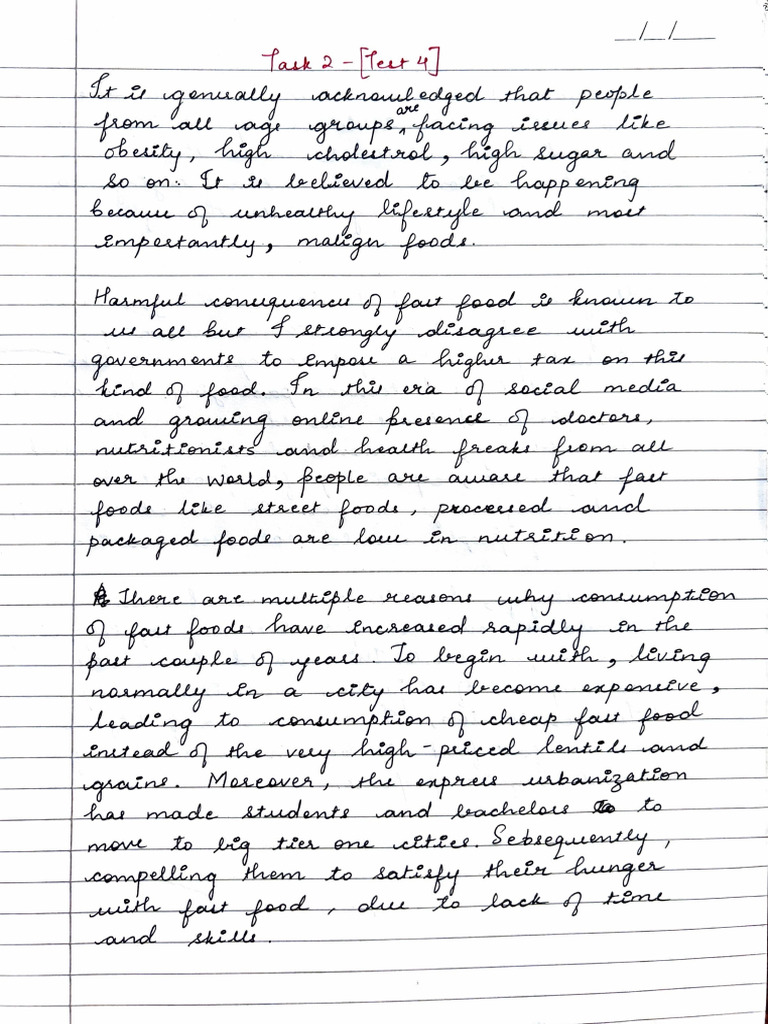 __/__/__
Task 2 - [Test 4]
It is generally acknowledged that people
from all age groups are facing issues like
obesity, high cholestrol, high sugar and
so on. It is believed to be happening
because of unhealthy lifestyle and most
importantly, malign foods.
Harmful consequences of fast food is known to
us all but I strongly disagree with
governments to impose a higher tax on this
kind of food. In this era of social media
and growing online presence of doctors,
nutritionists and health freaks from all
over the world, people are aware that fast
foods like street foods, processed and
packaged foods are low in nutrition.
There are multiple reasons why consumption
of fast foods have increased rapidly in the
past couple of years. To begin with, living
normally in a city has become expensive,
leading to consumption of cheap fast food
instead of the very high-priced lentils and
grains. Moreover, the express urbanization
has made students and bachelors to
move to big tier one cities. Sebsequently,
compelling them to satisfy their hunger
with fast food, due to lack of time
and skills.